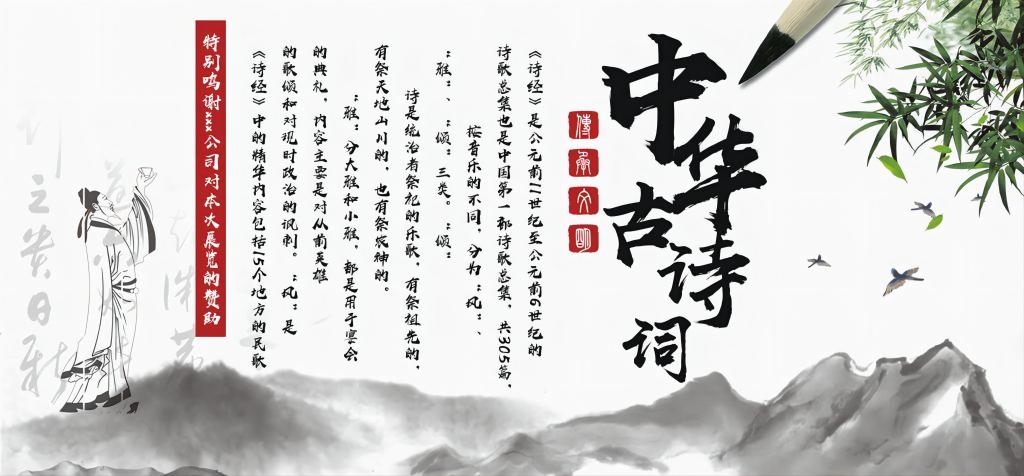 中华古诗词
傳承文明
《诗经》是公元前11世纪至公元前6世纪的
诗歌总集也是中国第一部诗歌总集,共305篇,
按音乐的不同,分为“风”、
“雅”、、“颂”三类。“颂”
诗是统治者祭祀的乐歌,有祭祖先的,
有祭天地山川的,也有祭农神的。
“雅”分大雅和小雅,都是用于宴会
的典礼,内容主要是对从前英雄
的歌颂和对现时政治的讽刺。“风”是
《诗经》中的精华内容包括15个地方的民歌
特别鸣谢xxx公司对本次展览的赞助
立贵日新